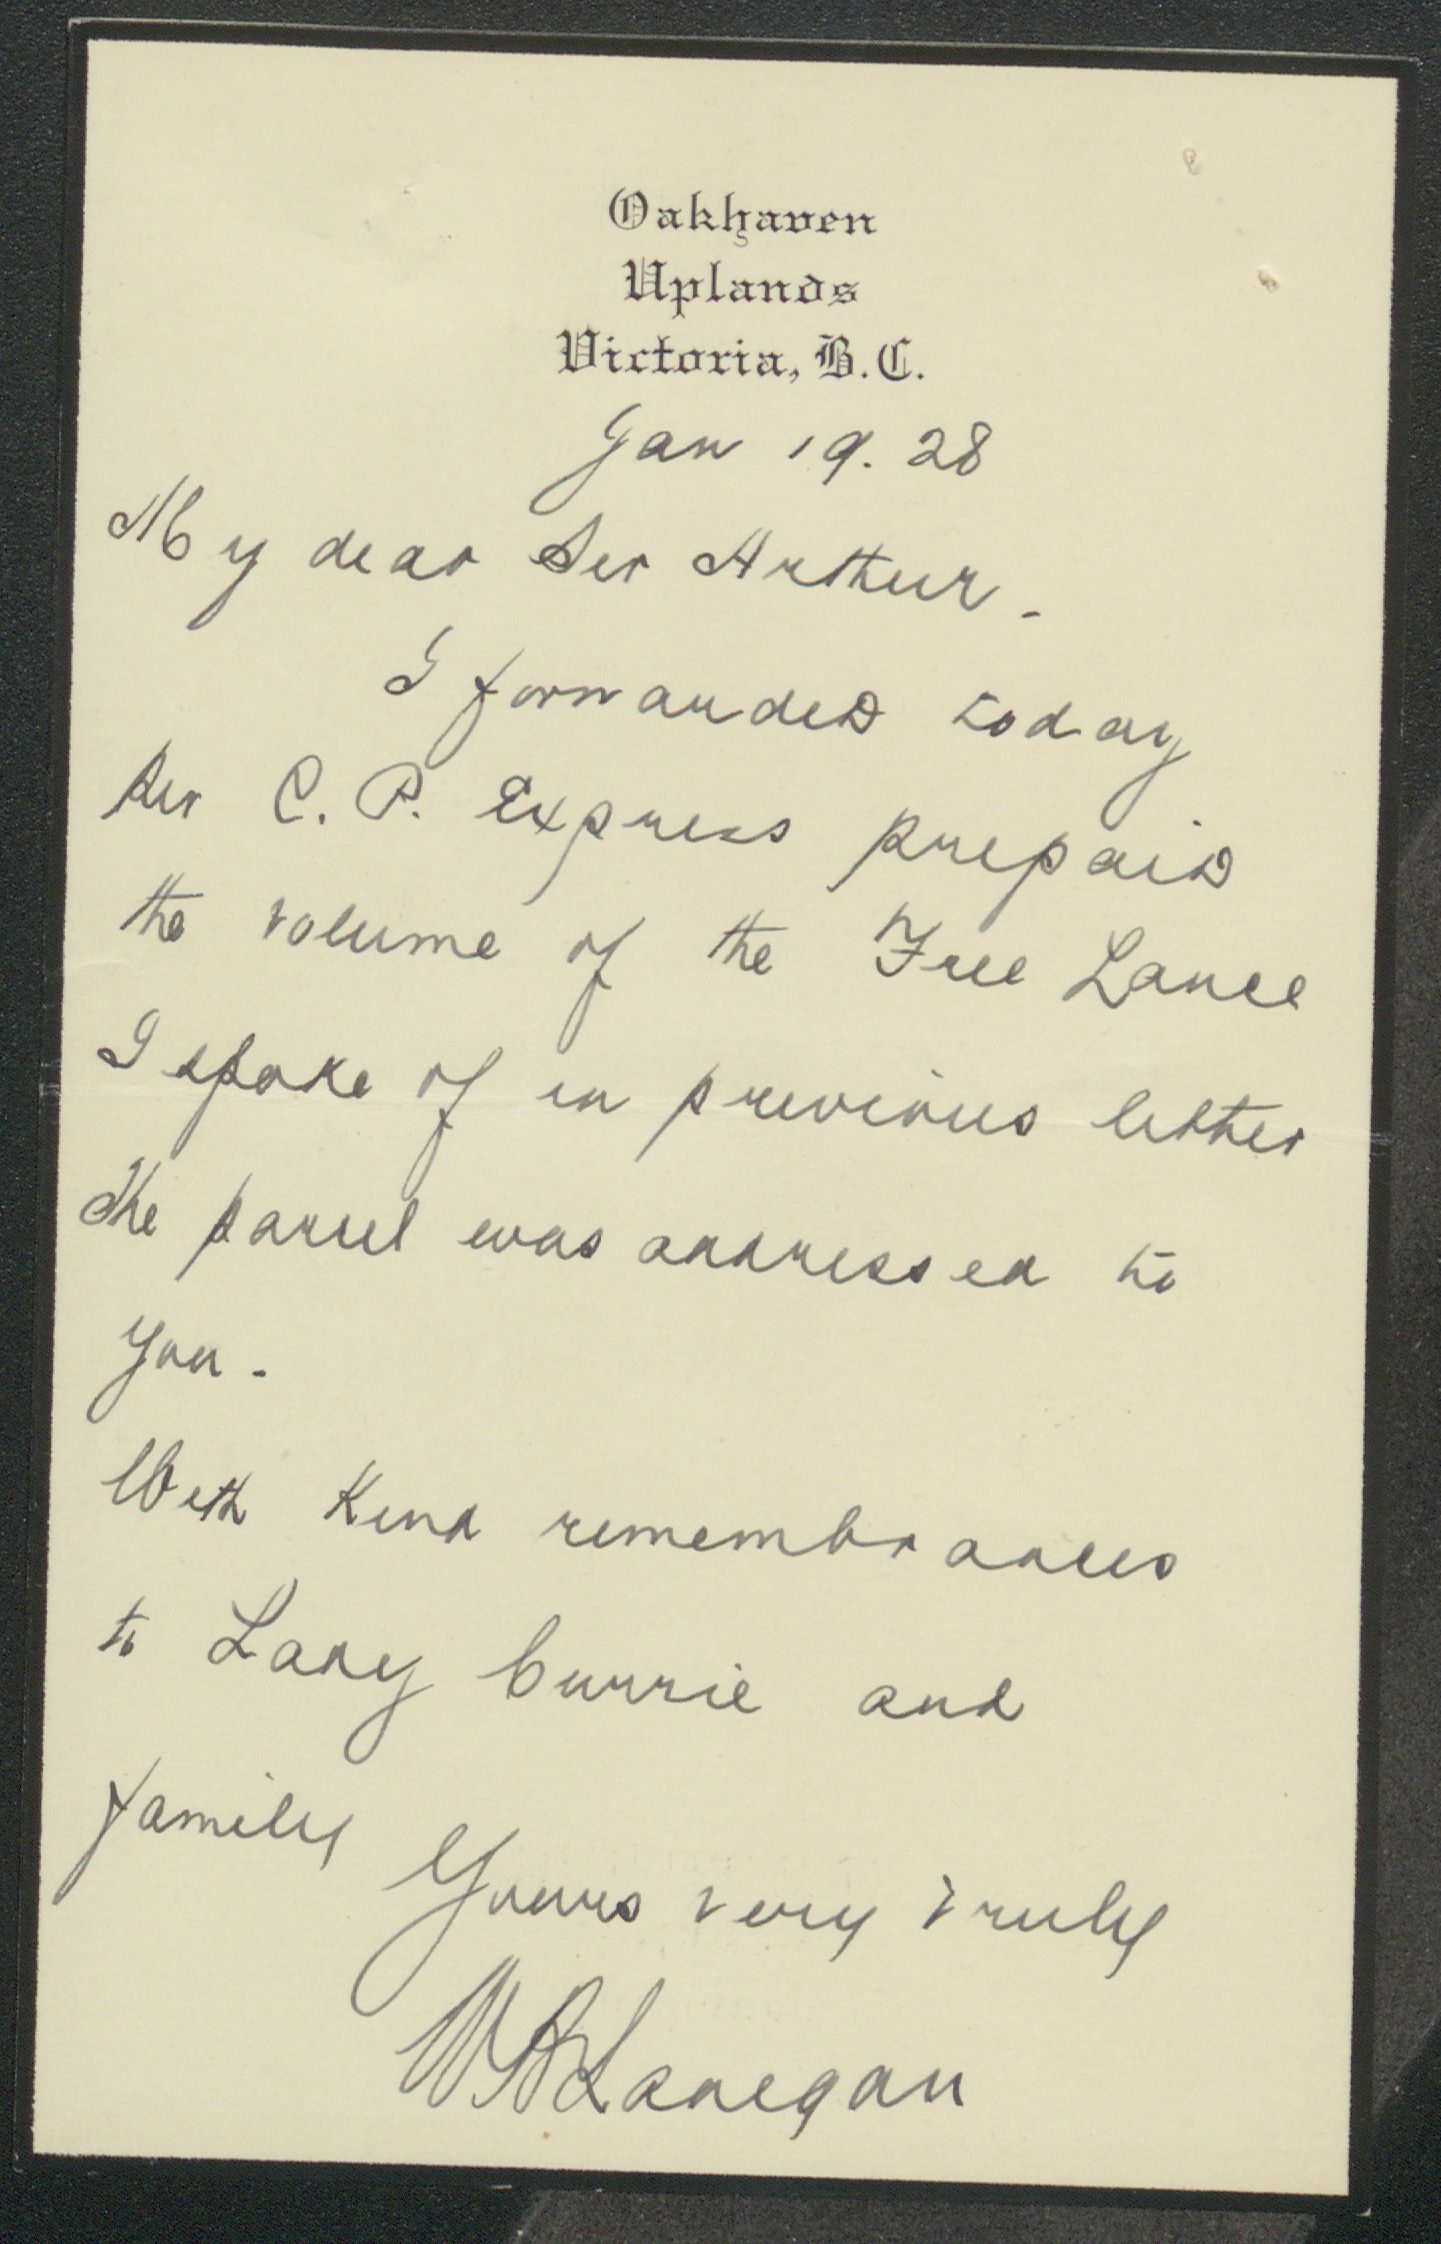 Oakhaven
Uplands
Victoria, B.C.
Jan 19. 28
My dear Sir Arthur.
I forwarded today
per C. P. Express prepaid
the volume of the Free Lance
I spoke of in previous letter
The parcel was addressed to
you.
With Kind remembrances
to Lady Currie and
family
Yours very truly